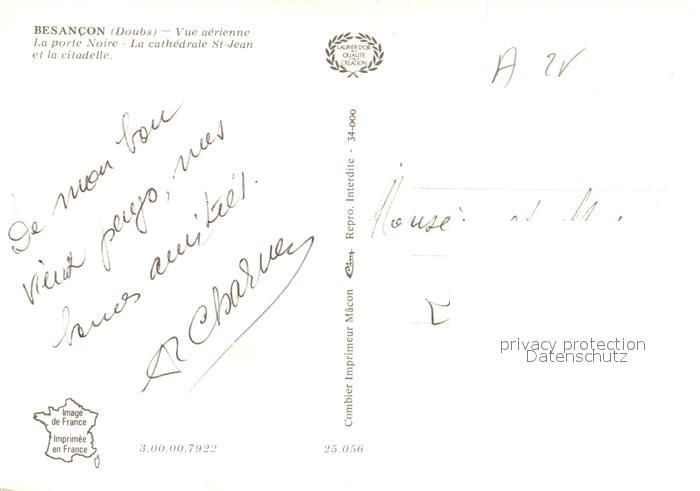 BESANÇON (Doubs) — Vue aérienne
La porte Noire - La cathédrale St-Jean
et la citadelle.
LAURIER D'OR
DE LA
QUALITÉ
CRÉATION
A 2V
De mon bon
vieux pays, mes
bonnes amitiés.
Charve
Combier Imprimeur Mâcon Cim Repro. Interdite - 34-000
privacy protection
Datenschutz
Image
de France
Imprimée
en France
3.00.00.7922
25.056